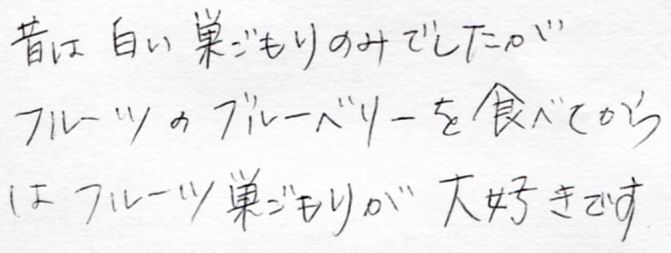 昔は白い巣ごもりのみでしたが
フルーツのブルーベリーを食べてから
はフルーツ巣ごもりが大好きです